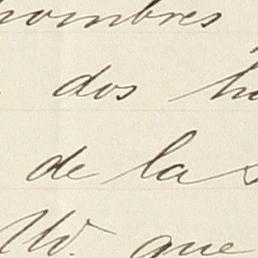 hombres
dos
de las
Ud. que